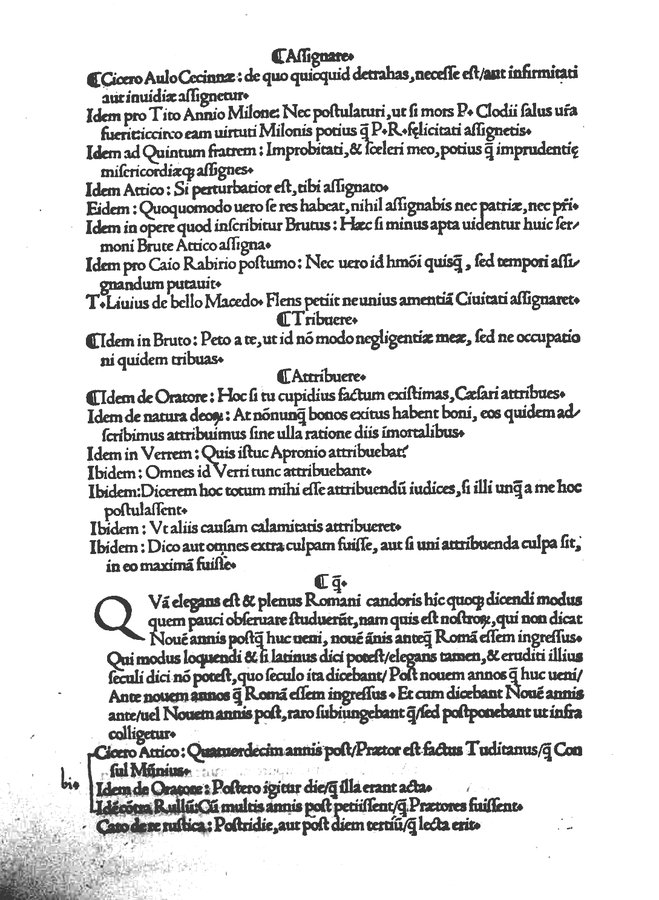 ¶Aſſignare.
¶Cicero Aulo Cecinnæ: de quo quicquid detrahas, neceſſe eſt/aut infirmitati
aut inuidiæ aſſignetur.
Idem pro Tito Annio Milone: Nec poſtulaturi, ut ſi mors P. Clodii ſalus ur̃a
fuerit:circo eam uirtuti Milonis potius q̃ P.R.fęlicitati aſſignetis.
Idem ad Quintum fratrem: Improbitati,& ſceleri meo, potius q̃ imprudentię
miſericordiæqꝫ aſſignes.
Idem Attico: Si perturbatior eſt, tibi aſſignato.
Eidem: Quoquomodo uero ſe res habeat, nihil aſſignabis nec patriæ, nec pr̃i.
Idem in opere quod inſcribitur Brutus: Hæc ſi minus apta uidentur huic ſer/
moni Brute Attico aſſigna.
Idem pro Caio Rabirio poſtumo: Nec uero id hmõi quiſq̃, ſed tempori aſſi/
gnandum putauit.
T.Liuius de bello Macedo. Flens petiit ne unius amentiã Ciuitati aſſignaret.
¶Tribuere.
¶Idem in Bruto: Peto a te, ut id nõ modo negligentiæ meæ, ſed ne occupatio
ni quidem tribuas.
¶Attribuere.
¶Idem de Oratore: Hoc ſi tu cupidius factum exiſtimas, Cæſari attribues.
Idem de natura deoꝝ: At nõnunq̃ bonos exitus habent boni, eos quidem ad/
ſcribimus attribuimus ſine ulla ratione diis ĩmortalibus.
Idem in Verrem: Quis iſtuc Apronio attribuebat?
Ibidem: Omnes id Verri tunc attribuebant.
Ibidem:Dicerem hoc totum mihi eſſe attribuendũ iudices, ſi illi unq̃ a me hoc
poſtulaſſent.
Ibidem: Vt aliis cauſam calamitatis attribueret.
Ibidem: Dico aut omnes extra culpam fuiſſe, aut ſi uni attribuenda culpa ſit,
in eo maximã fuiſſe.
¶ q̃.
QVã elegans eſt & plenus Romani candoris hic quoqꝫ dicendi modus
quem pauci obſeruare ſtuduerũt, nam quis eſt noſtroꝝ, qui non dicat
Nouẽ annis poſtq̃ huc ueni, nouẽ ãnis anteq̃ Romã eſſem ingreſſus.
Qui modus loquendi & ſi latinus dici poteſt/elegans tamen, & eruditi illius
ſeculi dici nõ poteſt, quo ſeculo ita dicebant/ Poſt nouem annos q̃ huc ueni/
Ante nouem annos q̃ Romã eſſem ingreſſus. Et cum dicebant Nouẽ annis
ante/uel Nouem annis poſt, raro ſubiungebant q̃/ſed poſtponebant ut infra
colligetur.
Cicero Attico: Quatuordecim annis poſt/Prætor eſt factus Tuditanus/q̃ Con
ſul Mũnius.
Idem de Oratore: Poſtero igitur die/q̃ illa erant acta.
bis.
Idẽ cõtra Rullũ: Cũ multis annis poſt petiiſſent/q̃ Prætores fuiſſent.
Cato de re ruſtica: Poſtridie, aut poſt diem tertiũ/q̃ lecta erit.